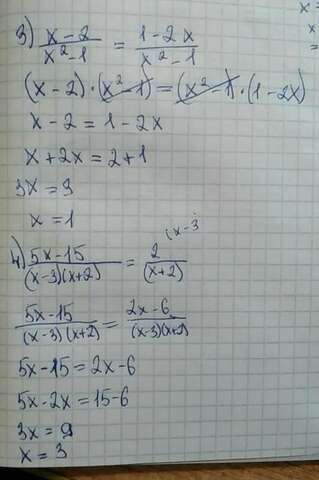 x =
x
=
3) x-2 / x²-1 = 1-2x / x²-1
(x-2)·(x²-1)=(x²-1)·(1-2x)
x-2=1-2x
x+2x=2+1
3x=3
x=1
(x-3
4) 5x-15 / (x-3)(x+2) = 2 / (x+2)
5x-15 / (x-3)(x+2) = 2x-6 / (x-3)(x+2)
5x-15=2x-6
5x-2x=15-6
3x=9
x=3